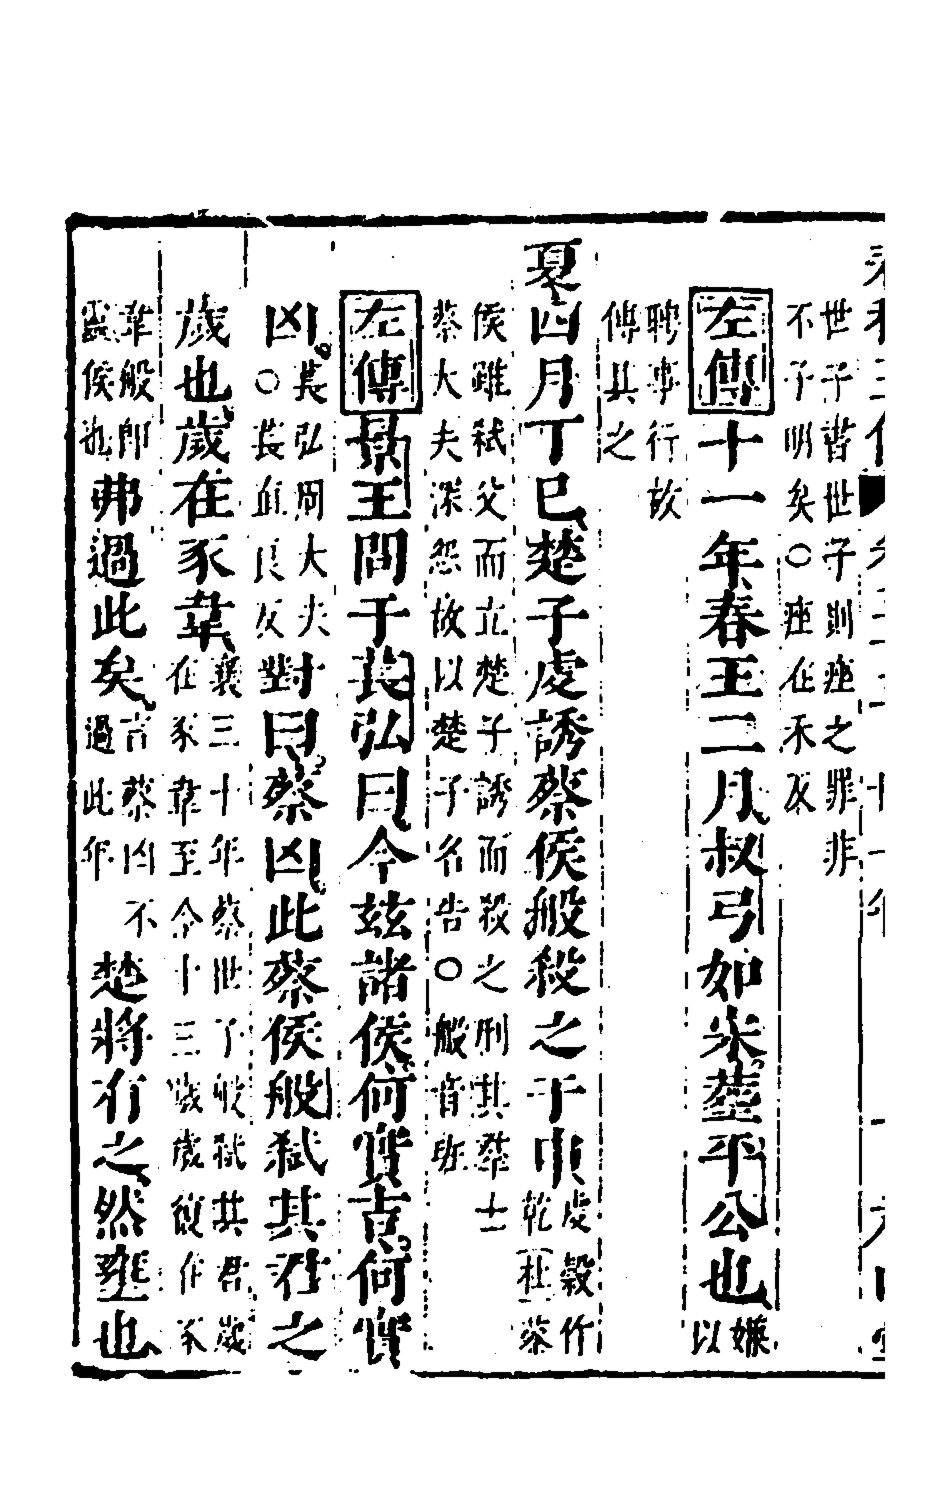 世子書世子則痤之罪非
不子明矣○痤在禾反
左傳十一年春王二月叔弓如宋葬平公也嫌以
聘事行故
傳具之
夏四月丁巳楚子虔誘蔡侯般殺之于申虔穀作乾杜蔡
侯雖弒父而立楚子誘而殺之刑其羣士
蔡大夫深怨故以楚子名告○般音班
左傳景王問于萇弘曰今茲諸侯何實吉何實
凶萇弘周大夫○萇直良反對曰蔡凶此蔡侯般弒其君之
歲也歲在豕韋襄三十年蔡世子般弒其君歲在豕韋至今十三歲歲復在豕
韋般即靈侯也弗過此矣言蔡凶不過此年楚將有之然壅也